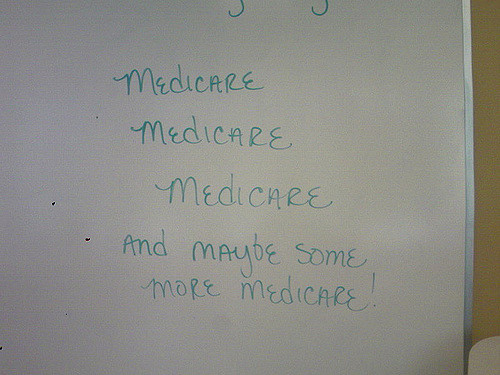 MEdICARE
MEdICARE
MEdICARE
ANd MAYbE SOME
MORE MEdICARE!